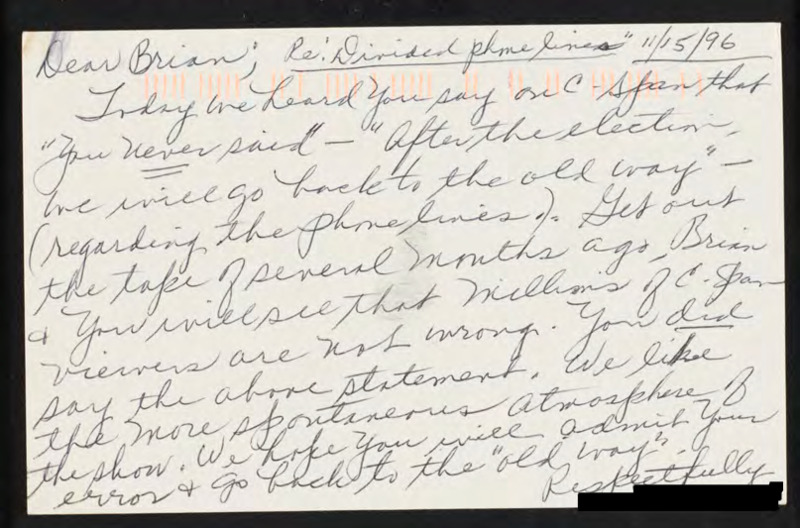 Dear Brian; Re: Divided phone lines" 11/15/96
Today we heard you say on C-Span that
"You never said" - "After the election,
we will go back to the old way" -
(regarding the phone lines). Get out
the tape of several months ago, Brian
& You will see that millions of C-Span
viewers are not wrong. You did
say the above statement. We like
the more spontaneous atmosphere of
the show. We hope you will admit your
error & go back to the "old way".
Respectfully